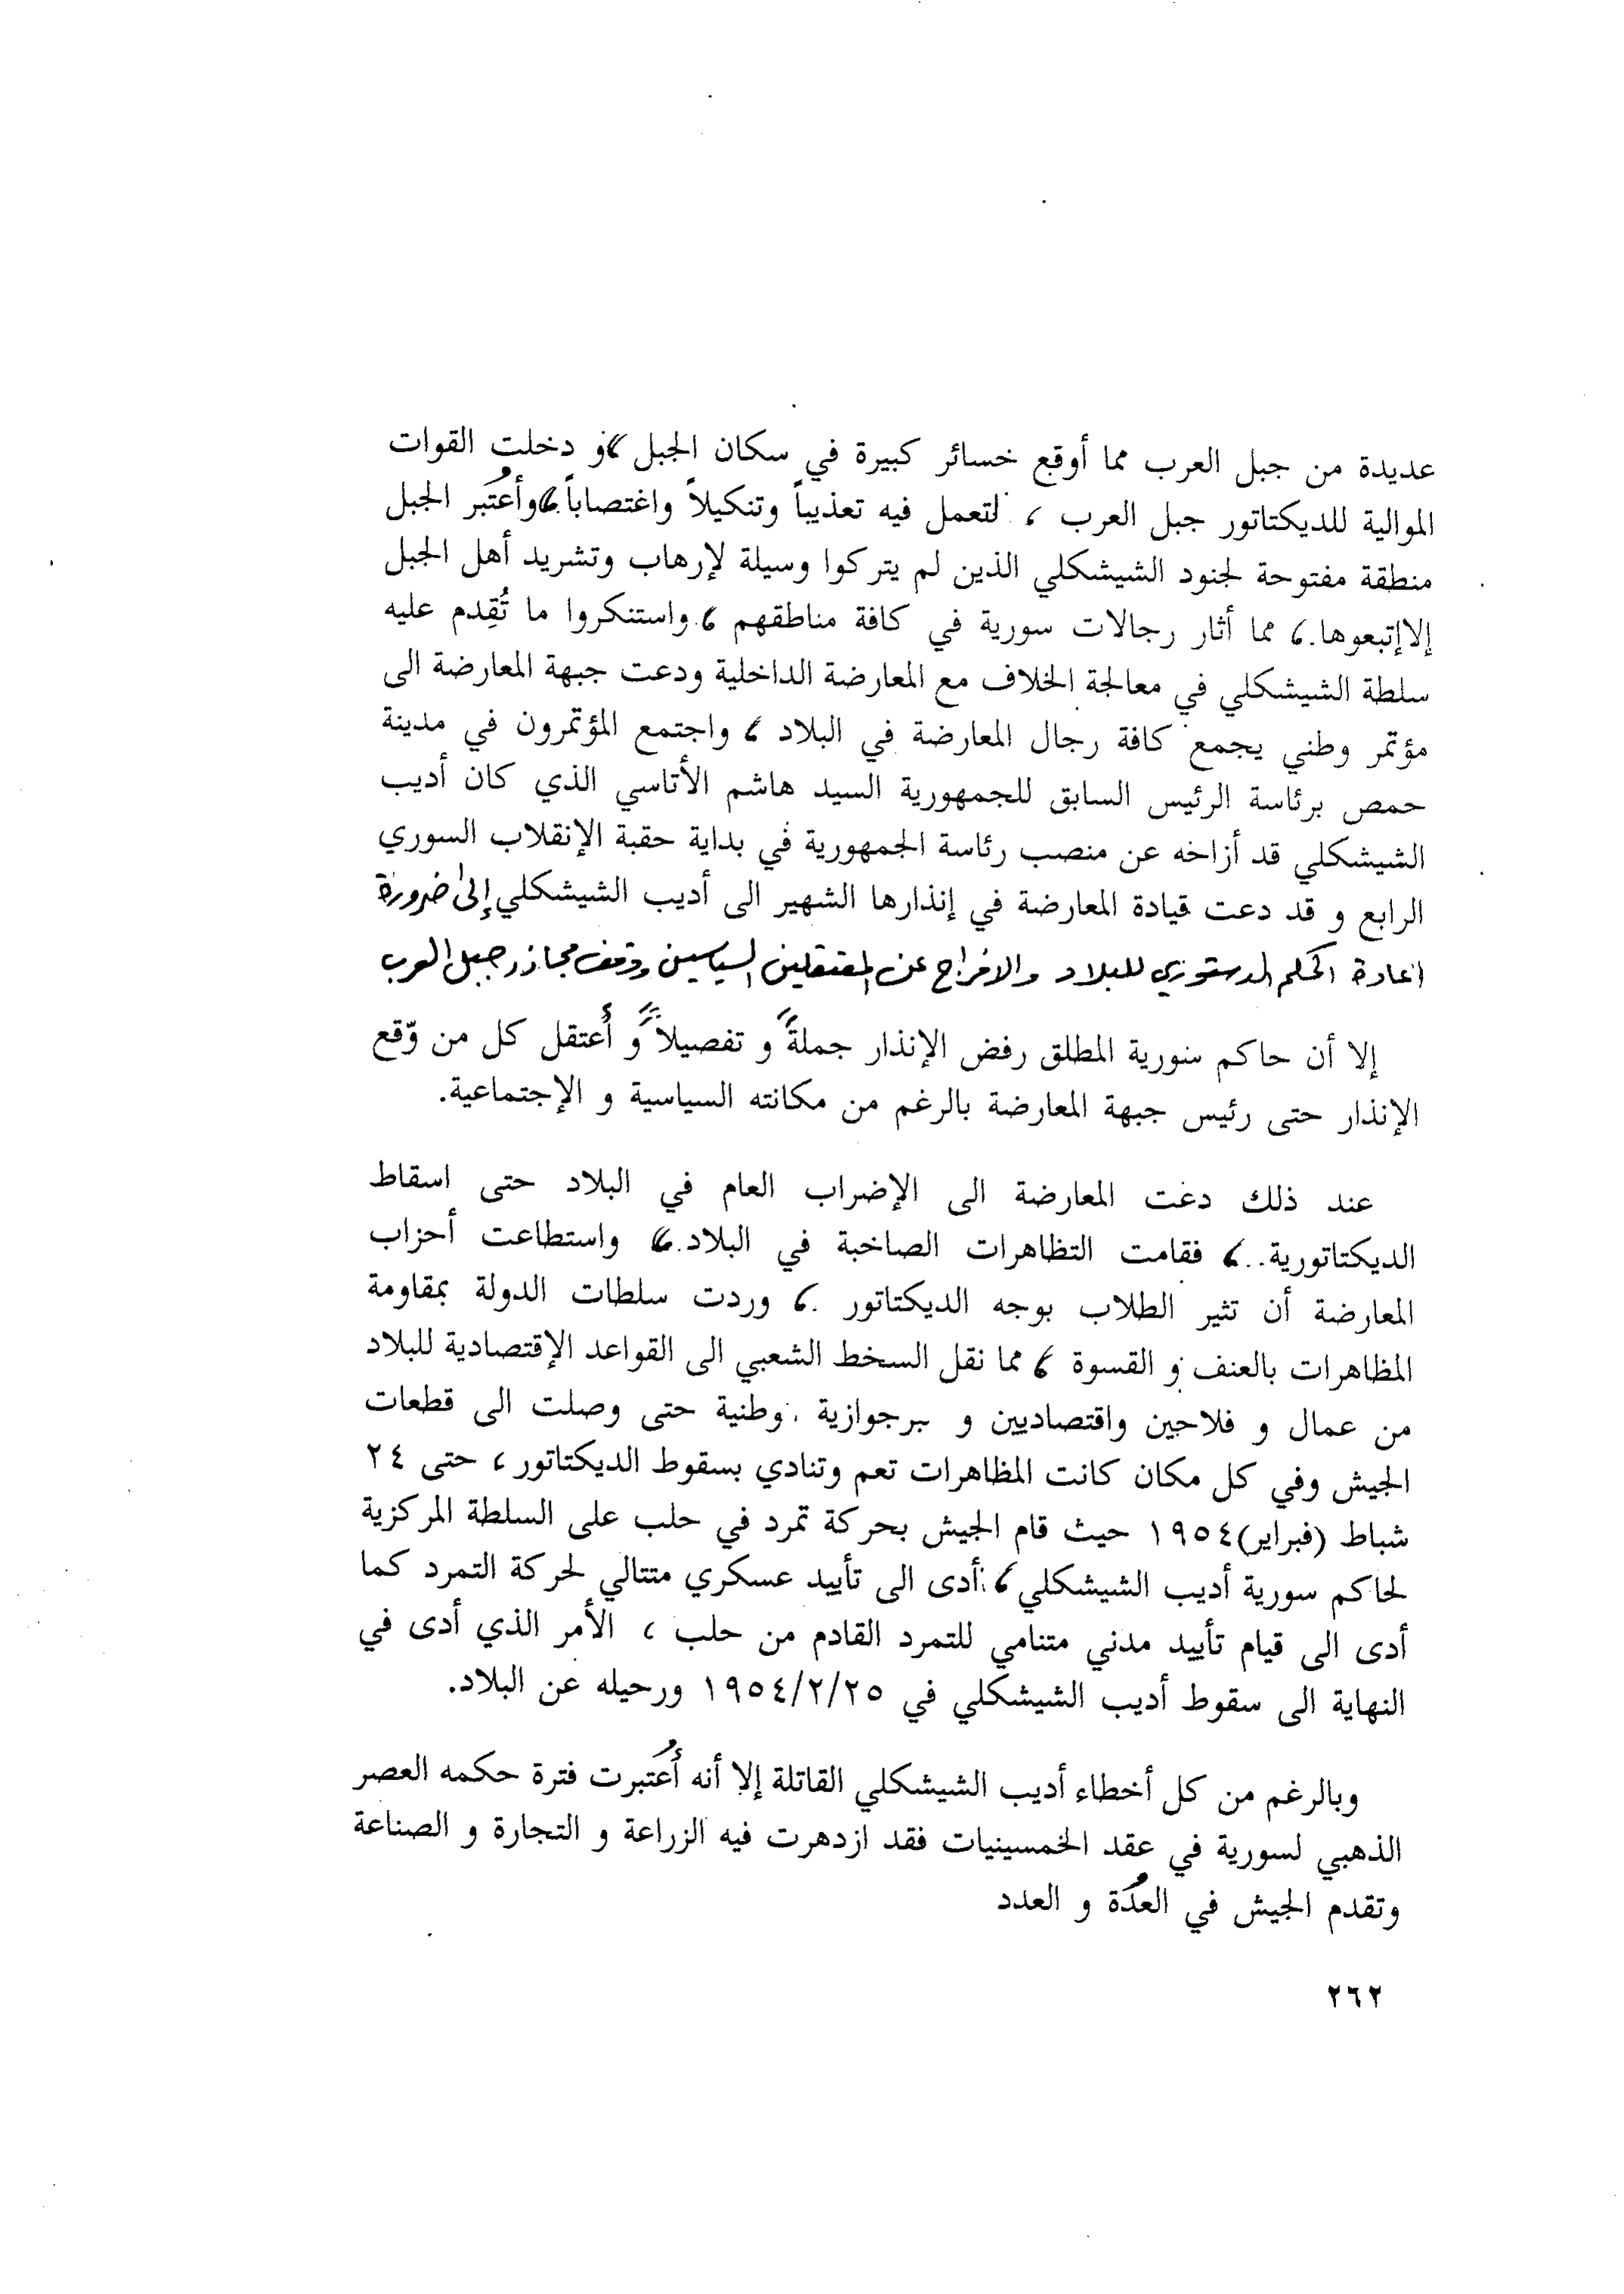 عديدة من جبل العرب مما أوقع خسائر كبيرة في سكان الجبل ، و دخلت القوات
الموالية للديكتاتور جبل العرب ، لتعمل فيه تعذيباً وتنكيلاً واغتصاباً ، وأُعتُبر الجبل
منطقة مفتوحة لجنود الشيشكلي الذين لم يتركوا وسيلة لإرهاب وتشريد أهل الجبل
إلاإتبعوها . ، مما أثار رجالات سورية في كافة مناطقهم ، واستنكروا ما تُقِدم عليه
سلطة الشيشكلي في معالجة الخلاف مع المعارضة الداخلية ودعت جبهة المعارضة الى
مؤتمر وطني يجمع كافة رجال المعارضة في البلاد ، واجتمع المؤتمرون في مدينة
حمص برئاسة الرئيس السابق للجمهورية السيد هاشم الأتاسي الذي كان أديب
الشيشكلي قد أزاخه عن منصب رئاسة الجمهورية في بداية حقبة الإنقلاب السوري
الرابع و قد دعت قيادة المعارضة في إنذارها الشهير الى أديب الشيشكلي إلى ضرورة
اعادة الحكم الدستوري للبلاد والافراج عن المعتقلين السياسين ووقف مجازر جبل العرب
إلا أن حاكم سورية المطلق رفض الإنذار جملةً و تفصيلاً و أُعتقل كل من وّقع
الإنذار حتى رئيس جبهة المعارضة بالرغم من مكانته السياسية و الإجتماعية.
عند ذلك دعت المعارضة الى الإضراب العام في البلاد حتى اسقاط
الديكتاتورية.. ، فقامت التظاهرات الصاخبة في البلاد. ، واستطاعت أحزاب
المعارضة أن تثير الطلاب بوجه الديكتاتور . ، وردت سلطات الدولة بمقاومة
المظاهرات بالعنف و القسوة ، مما نقل السخط الشعبي الى القواعد الإقتصادية للبلاد
من عمال و فلاحين واقتصاديين و برجوازية وطنية حتى وصلت الى قطعات
الجيش وفي كل مكان كانت المظاهرات تعم وتنادي بسقوط الديكتاتور ، حتى ٢٤
شباط (فبراير)١٩٥٤ حيث قام الجيش بحركة تمرد في حلب على السلطة المركزية
لحاكم سورية أديب الشيشكلي ، أدى الى تأييد عسكري متتالي لحركة التمرد كما
أدى الى قيام تأييد مدني متنامي للتمرد القادم من حلب ، الأمر الذي أدى في
النهاية الى سقوط أديب الشيشكلي في ١٩٥٤/٢/٢٥ ورحيله عن البلاد.
وبالرغم من كل أخطاء أديب الشيشكلي القاتلة إلا أنه أُعتُبرت فترة حكمه العصر
الذهبي لسورية في عقد الخمسينيات فقد ازدهرت فيه الزراعة و التجارة و الصناعة
وتقدم الجيش في العُدّة و العدد
٢٦٢